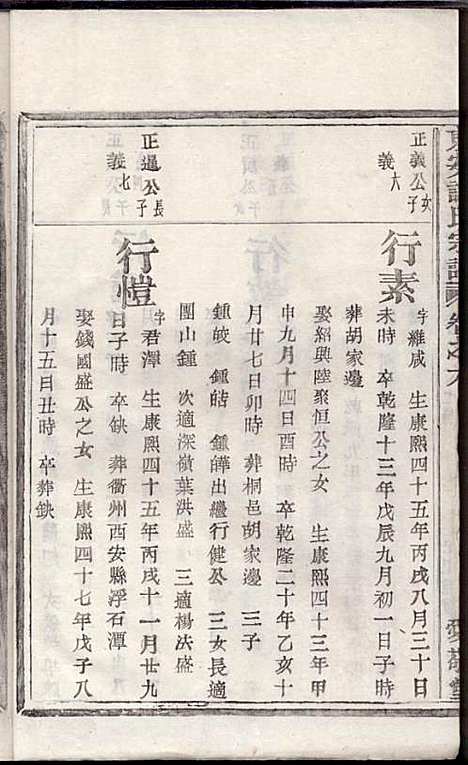 正義公女子
義六
行素
字維咸 生康熙四十五年丙戌八月三十日
未時 卒乾隆十三年戊辰九月初一日子時
葬胡家邊
娶紹興陸聚恒公之女 生康熙四十三年甲
申九月十四日酉時 卒乾隆二十年乙亥十
月廿七日卯時 葬桐邑胡家邊 三子
鍾皎 鍾皓 鍾皞出繼行健公 三女長適
圍山鍾 次適深嶺葉洪盛 三適楊汰盛
正暹公長子
義七
行愷
字君澤 生康熙四十五年丙戌十一月廿九
日子時 卒缺 葬衢州西安縣浮石潭
娶錢國盛公之女 生康熙四十七年戊子八
月十五日丑時 卒葬缺